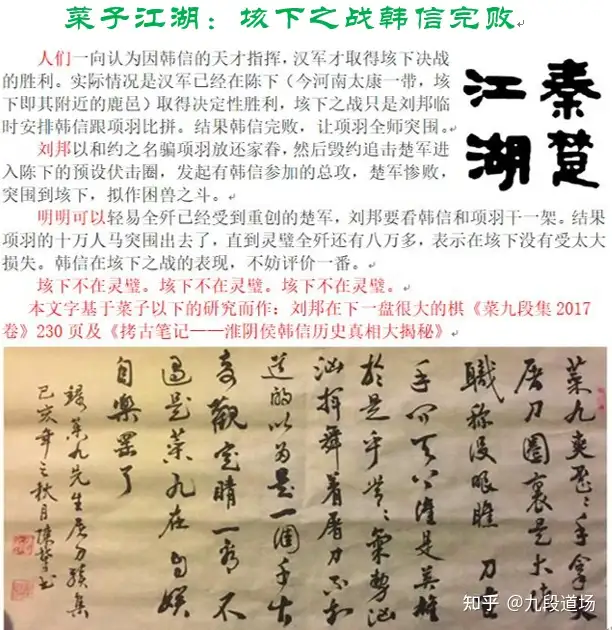 菜子江湖：垓下之战韩信完败
人们一向认为因韩信的天才指挥，汉军才取得垓下决战
的胜利。实际情况是汉军已经在陈下（今河南太康一带，垓
下即其附近的鹿邑）取得决定性胜利，垓下之战只是刘邦临
时安排韩信跟项羽比拼。结果韩信完败，让项羽全师突围。
刘邦以和约之名骗项羽放还家眷，然后毁约追击楚军进
入陈下的预设伏击圈，发起有韩信参加的总攻，楚军惨败，
突围到垓下，拟作困兽之斗。
明明可以轻易全歼已经受到重创的楚军，刘邦要看韩信和项羽干一架。结果
项羽的十万人马突围出去了，直到灵璧全歼还有八万多，表示在垓下没有受太大
损失。韩信在垓下之战的表现，不妨评价一番。
垓下不在灵璧。垓下不在灵璧。垓下不在灵璧。
本文字基于菜子以下的研究而作：刘邦在下一盘很大的棋《菜九段集 2017
卷》230 页及《拷古笔记——淮阴侯韩信历史真相大揭秘》
秦楚
江湖
菜九爽歪歪手拿大
屠刀圈裏是大
職称没眼瞧 刀
手天下誰是英雄
於是乎氣勢汹
汹挥舞着屠刀不知
道的以为是一個千古
奇觀定睛一看不
过是菜九在自娱
自樂罢了
録菜九先生屠刀續集
己亥年之秋月陳书
知乎 @九段道场